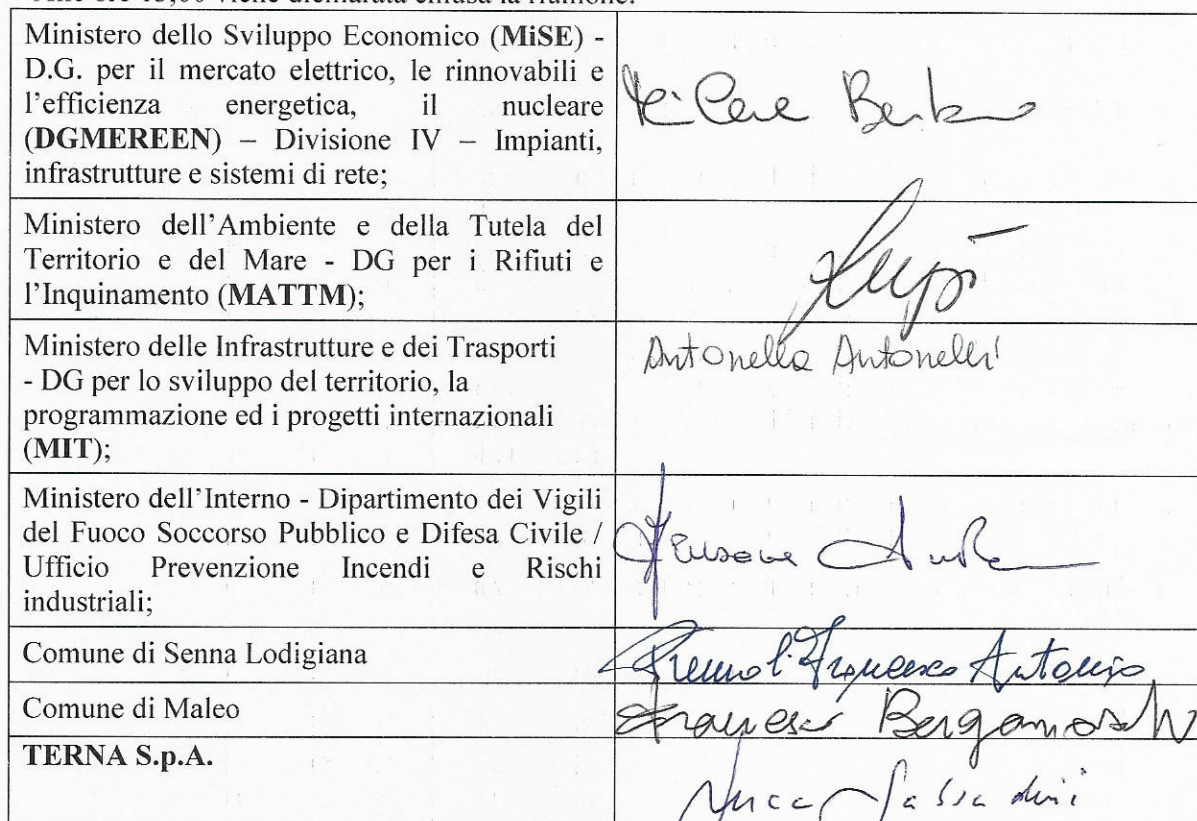 Ministero dello Sviluppo Economico (MiSE) -
D.G. per il mercato elettrico, le rinnovabili e
l'efficienza energetica, il nucleare
(DGMEREEN) – Divisione IV – Impianti,
infrastrutture e sistemi di rete;
Ministero dell'Ambiente e della Tutela del
Territorio e del Mare - DG per i Rifiuti e
l'Inquinamento (MATTM);
Ministero delle Infrastrutture e dei Trasporti
- DG per lo sviluppo del territorio, la
programmazione ed i progetti internazionali
(MIT);
Antonella Antonelli
Ministero dell'Interno - Dipartimento dei Vigili
del Fuoco Soccorso Pubblico e Difesa Civile /
Ufficio Prevenzione Incendi e Rischi
industriali;
Comune di Senna Lodigiana
Francesco Antonio
Comune di Maleo
Francesco Bergamaschi
TERNA S.p.A.